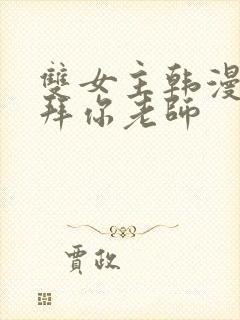 雙女主韩漫
拜你老師
賈政